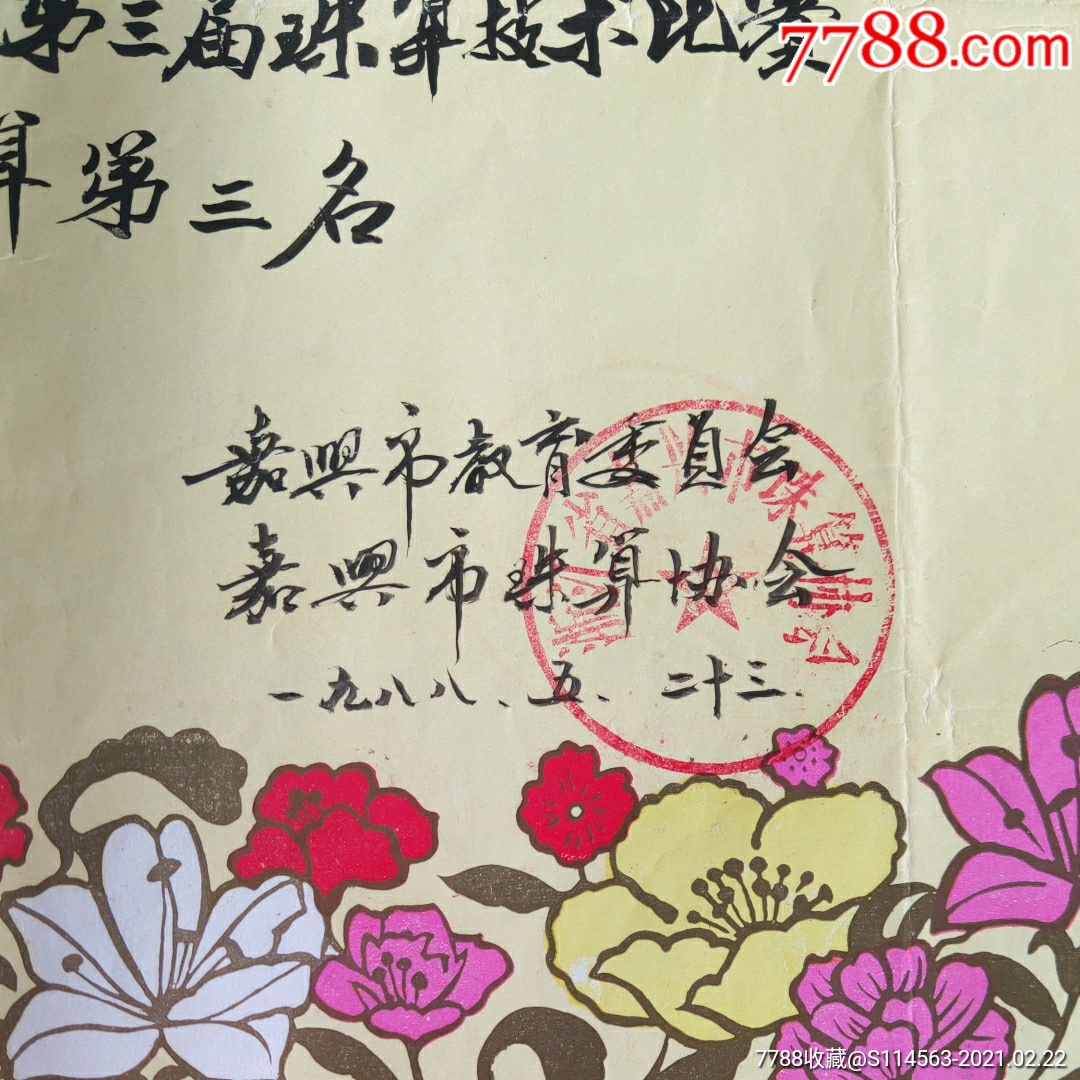 第三届珠算技术比赛
7788.com
算第三名
嘉興市教育委員会
嘉興市珠算协会
一九八八、五、二十三.
7788收藏@S114563-2021.02.22